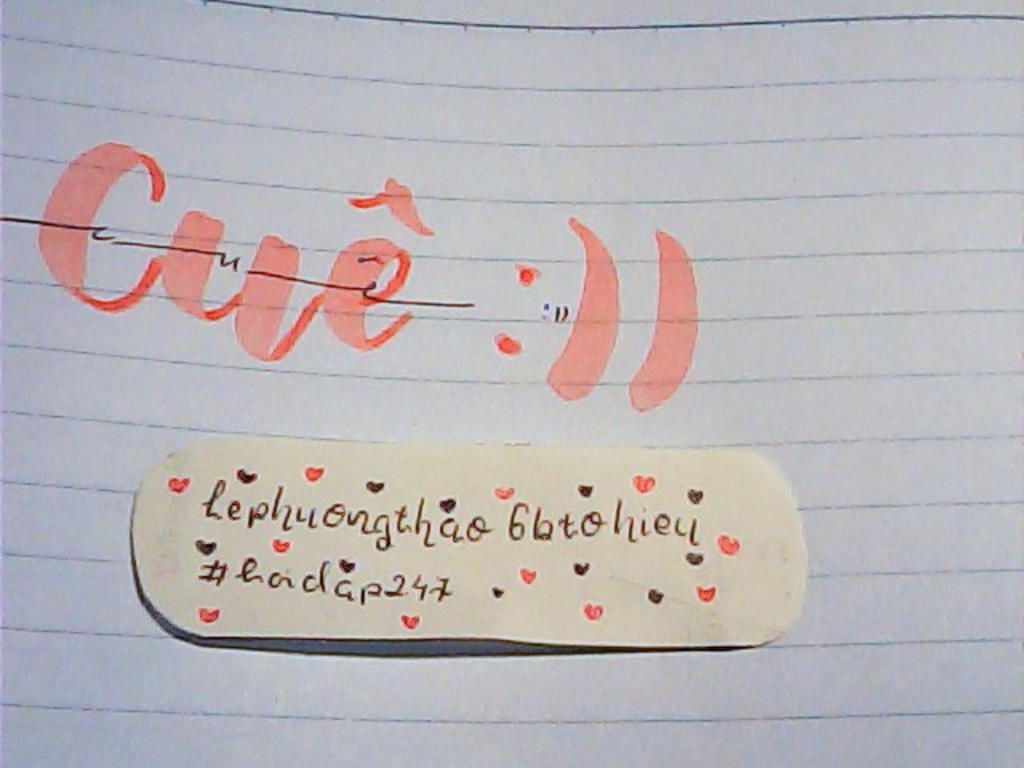 Cuê :))
cuê :))
lephuongthao6btohieu
#hoidap247